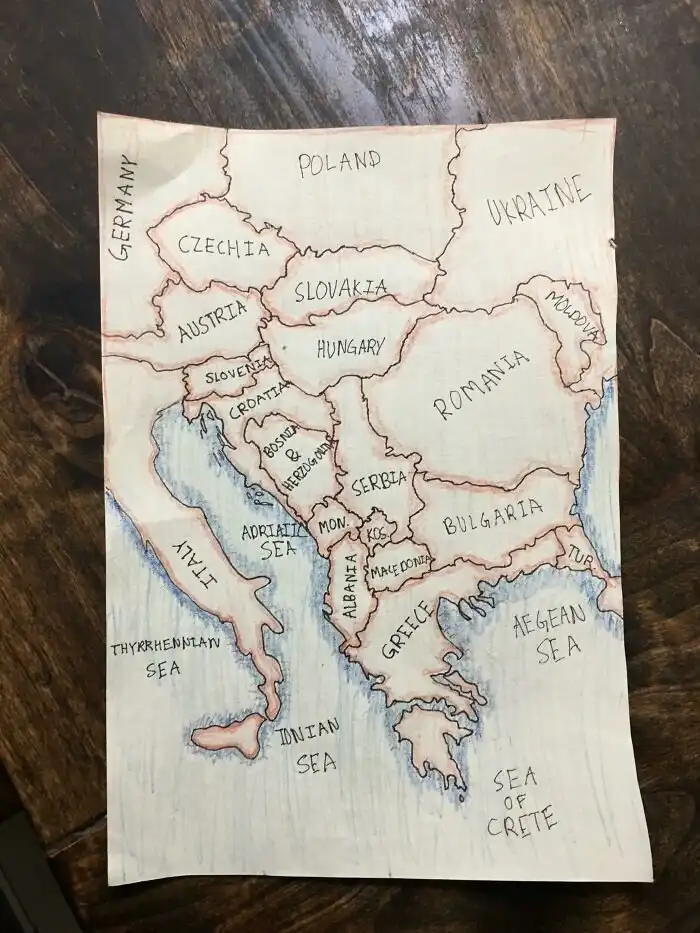 GERMANY
POLAND
UKRAINE
CZECHIA
SLOVAKIA
MOLDOVA
AUSTRIA
HUNGARY
SLOVENIA
CROATIA
ROMANIA
BOSNIA
&
HERZOGOVINA
SERBIA
BULGARIA
ADRIATIC
SEA
MON.
KOS.
ITALY
ALBANIA
MACEDONIA
TUR.
GREECE
AEGEAN
SEA
THYRRHENNIAN
SEA
IONIAN
SEA
SEA
OF
CRETE